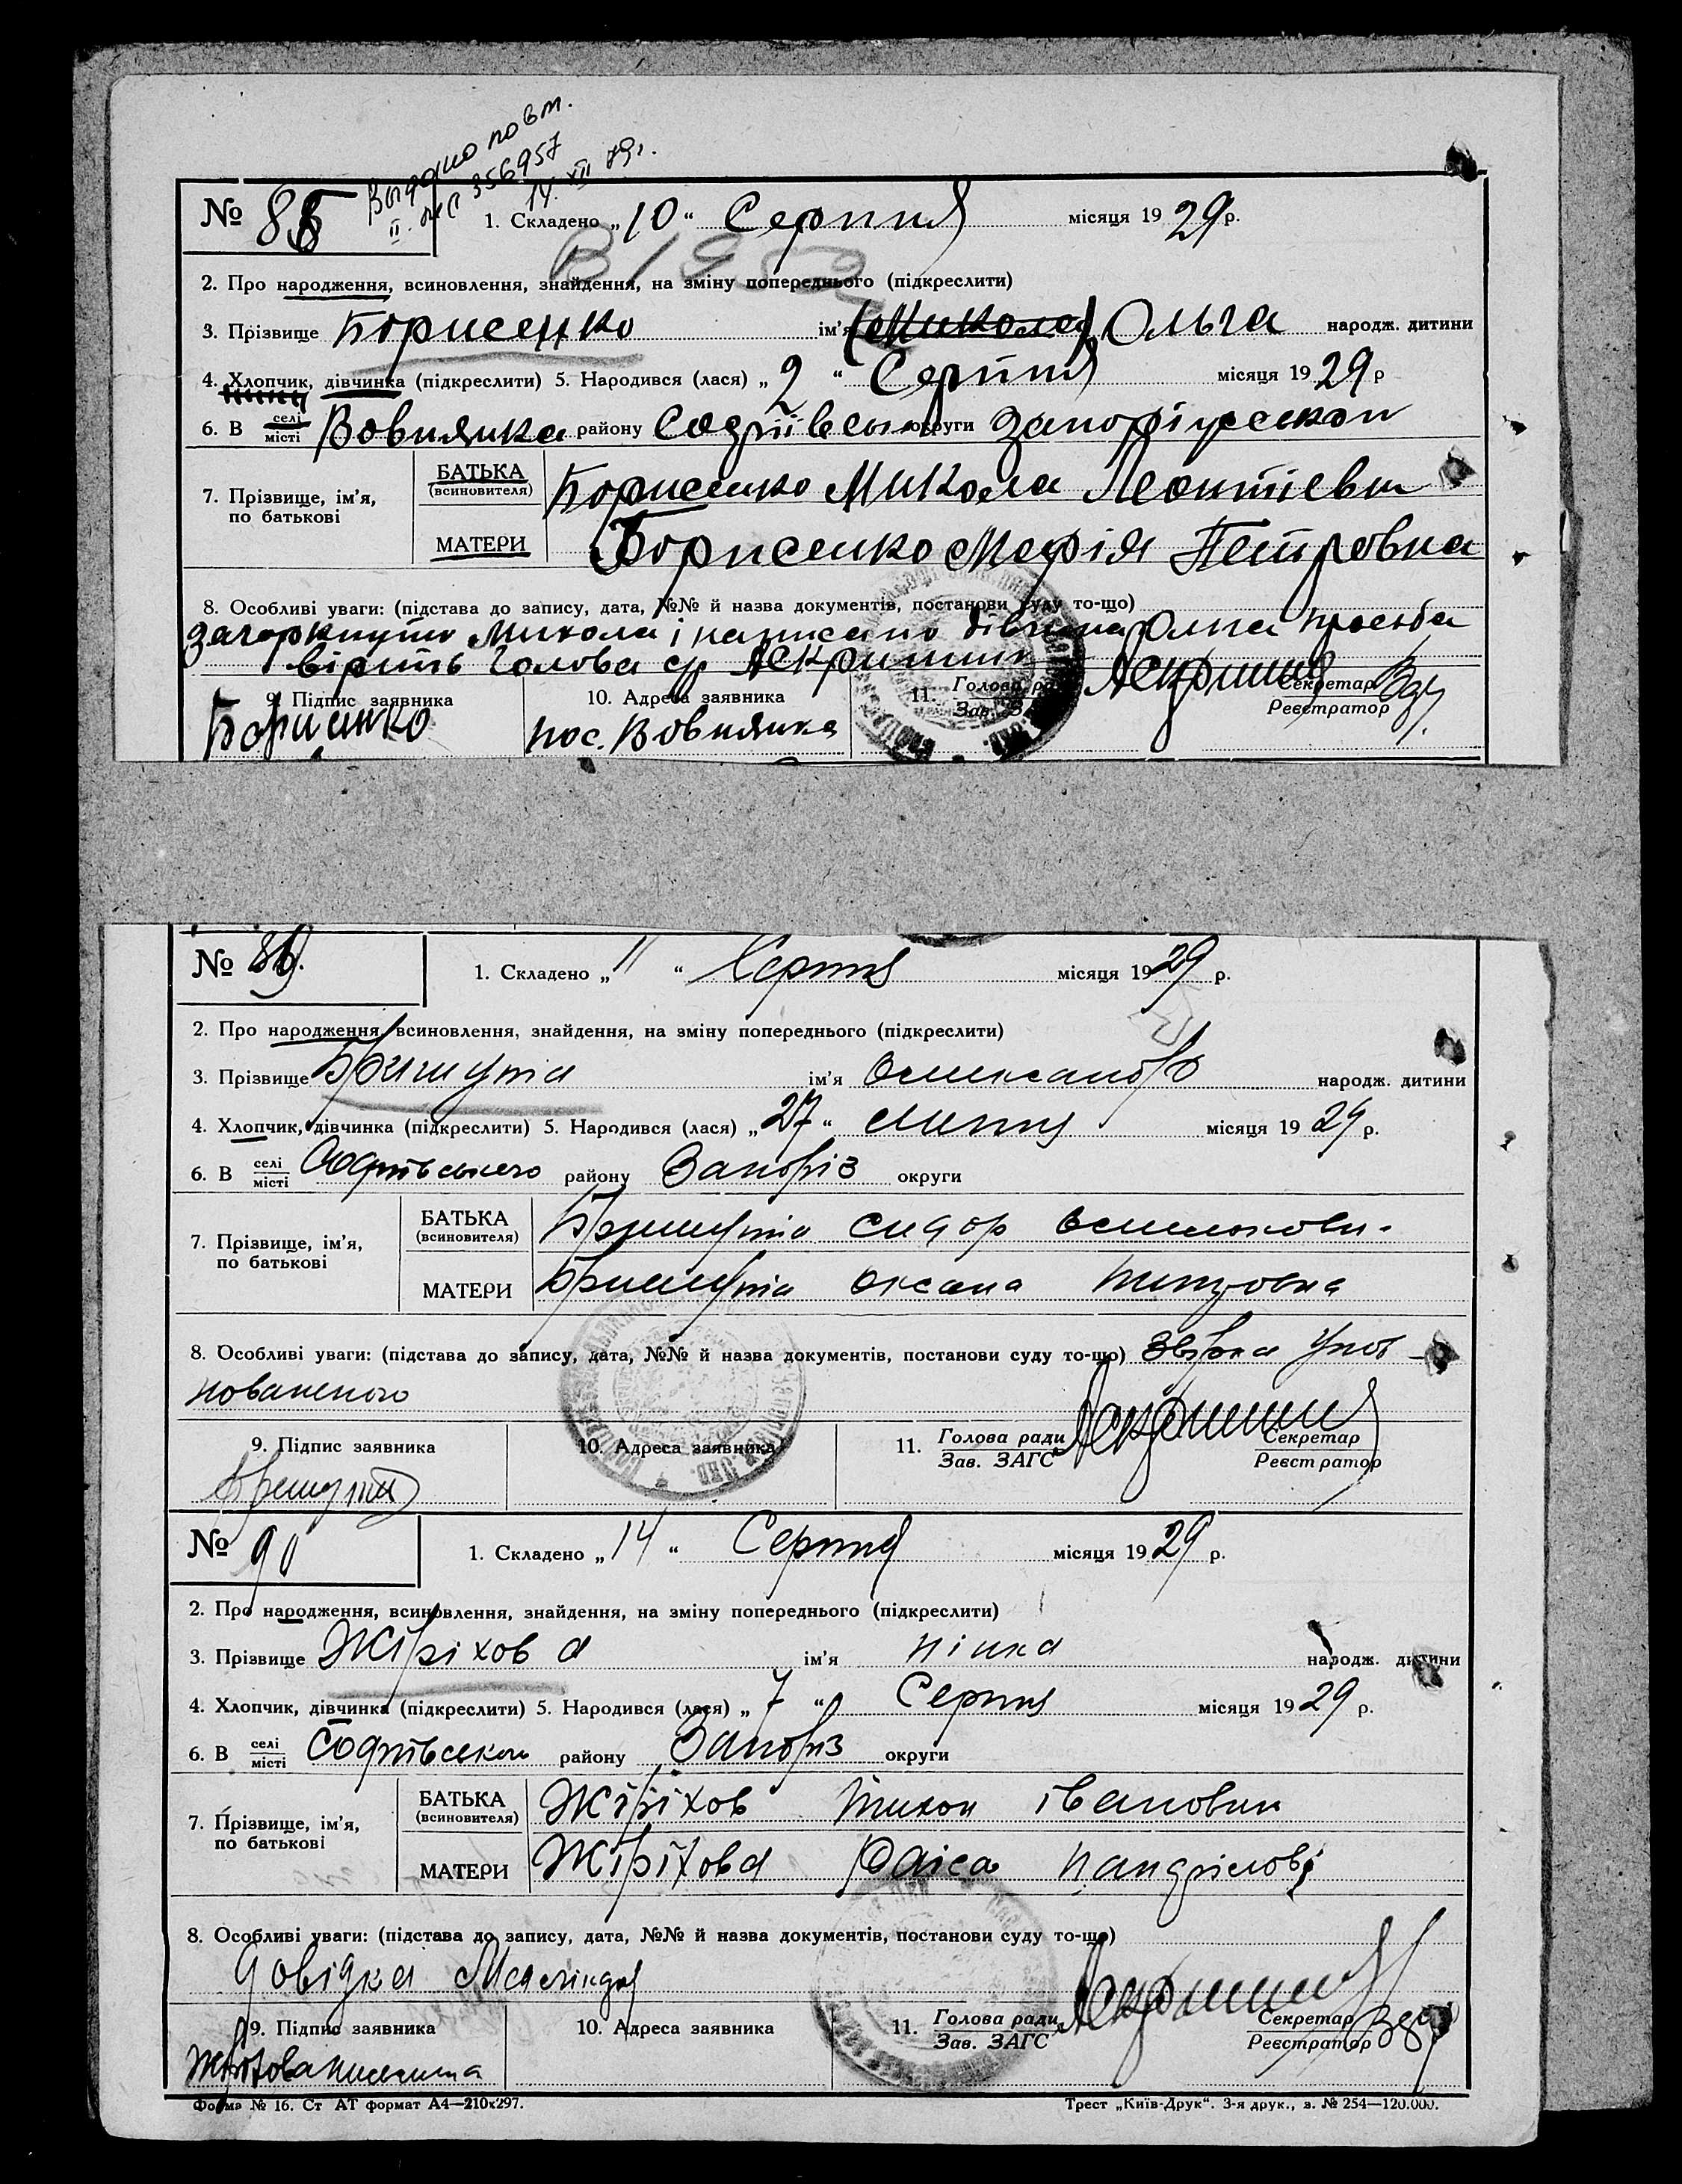 Выдано повт.
II. 356957
14. XII 79г.
№ 85
1. Складено „10“ Серпня місяця 1929 р.
В 1952
2. Про народження, всиновлення, знайдення, на зміну попереднього (підкреслити)
3. Прізвище Борисенко ім'я (Микола) Ольга народж. дитини
4. Хлопчик, дівчинка (підкреслити) 5. Народився (лася) „2“ Серпня місяця 1929 р
6. В селі місті Вовнянка району округи
7. Прізвище, ім'я, по батькові
БАТЬКА (всиновителя) Борисенко Микола Леонтієвич
МАТЕРИ Борисенко Марія Петровна
8. Особливі уваги: (підстава до запису, дата, №№ й назва документів, постанови суду то-що)
Микола і написано дівчина Ольга
вірить Голова ср
9. Підпис заявника
10. Адреса заявника
11. Голова ради Зав. ЗАГС
Секретар Реєстратор
Борисенко
пос. Вовнянка
№ 89.
1. Складено „11“ Серпня місяця 1929 р.
2. Про народження, всиновлення, знайдення, на зміну попереднього (підкреслити)
3. Прізвище ім'я народж. дитини
4. Хлопчик, дівчинка (підкреслити) 5. Народився (лася) „27“ Липня місяця 1929 р.
6. В селі місті району Запоріз округи
7. Прізвище, ім'я, по батькові
БАТЬКА (всиновителя) Сидор
МАТЕРИ Оксана
8. Особливі уваги: (підстава до запису, дата, №№ й назва документів, постанови суду то-що)
9. Підпис заявника
10. Адреса заявника
11. Голова ради Зав. ЗАГС
Секретар Реєстратор
№ 90
1. Складено „14“ Серпня місяця 1929 р.
2. Про народження, всиновлення, знайдення, на зміну попереднього (підкреслити)
3. Прізвище Жіріхова ім'я Нінка народж. дитини
4. Хлопчик, дівчинка (підкреслити) 5. Народився (лася) „7“ Серпня місяця 1929 р.
6. В селі місті району Запоріз округи
7. Прізвище, ім'я, по батькові
БАТЬКА (всиновителя) Жіріхов Тихон Іванович
МАТЕРИ Жіріхова Раіса
8. Особливі уваги: (підстава до запису, дата, №№ й назва документів, постанови суду то-що)
Довідка
9. Підпис заявника
10. Адреса заявника
11. Голова ради Зав. ЗАГС
Секретар Реєстратор
Форма № 16. Ст АТ формат А4—210х297.
Трест „Київ-Друк“. 3-я друк., з. № 254—120.000.